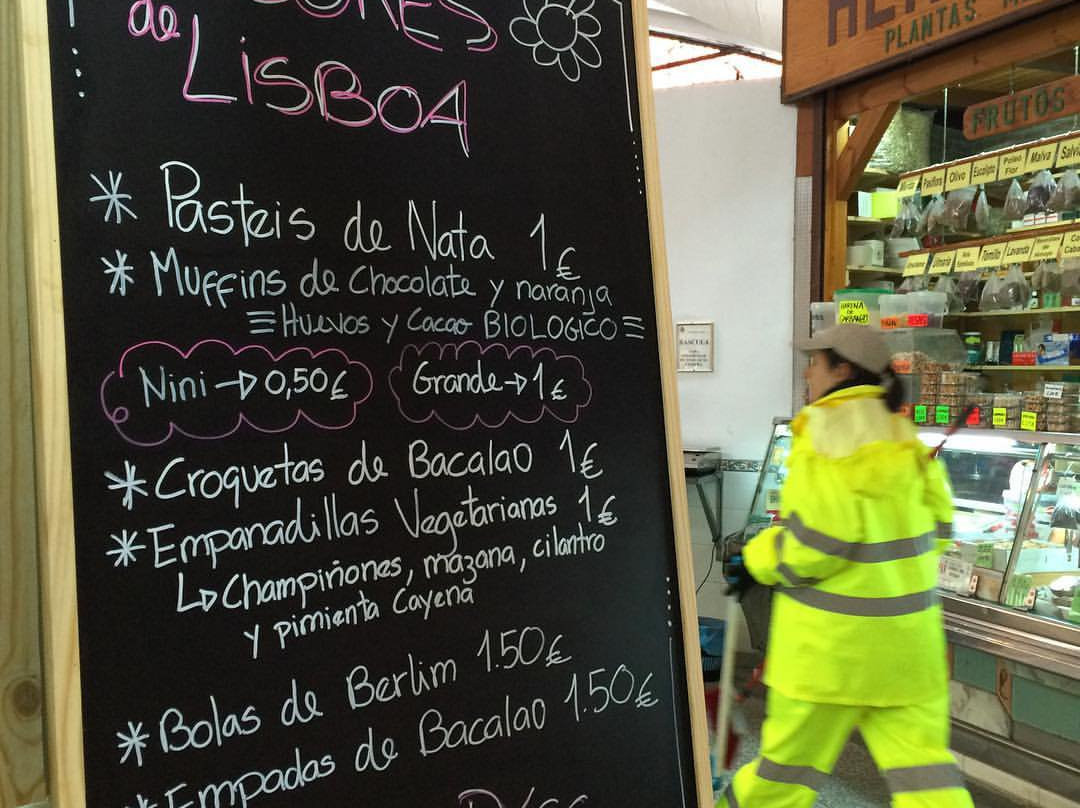 de
LISBOA
* Pasteis de Nata 1€
* Muffins de Chocolate y naranja
≡ Huevos y Cacao BIOLOGICO ≡
Nini → 0,50€
Grande → 1€
* Croquetas de Bacalao 1€
* Empanadillas Vegetarianas 1€
↳ Champiñones, mazana, cilantro
y pimienta Cayena
* Bolas de Berlim 1.50€
* Empadas de Bacalao 1.50€
PLANTAS
FRUTOS
Pasiflora
Olivo
Eucalipto
Poleo
Flor
Malva
Salvi
Tomillo
Lavanda
BASCULA
HARINA DE
GARBANZO